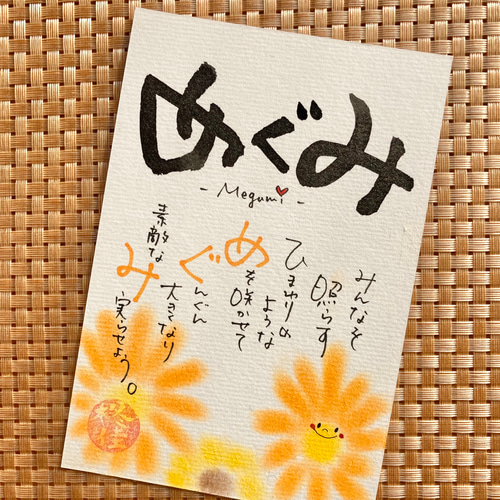 めぐみ
- Megumi -
みんなを
照らす
ひまわりの
ような
めを咲かせて
ぐんぐん
大きくなり
み
素敵な
実らせよう。